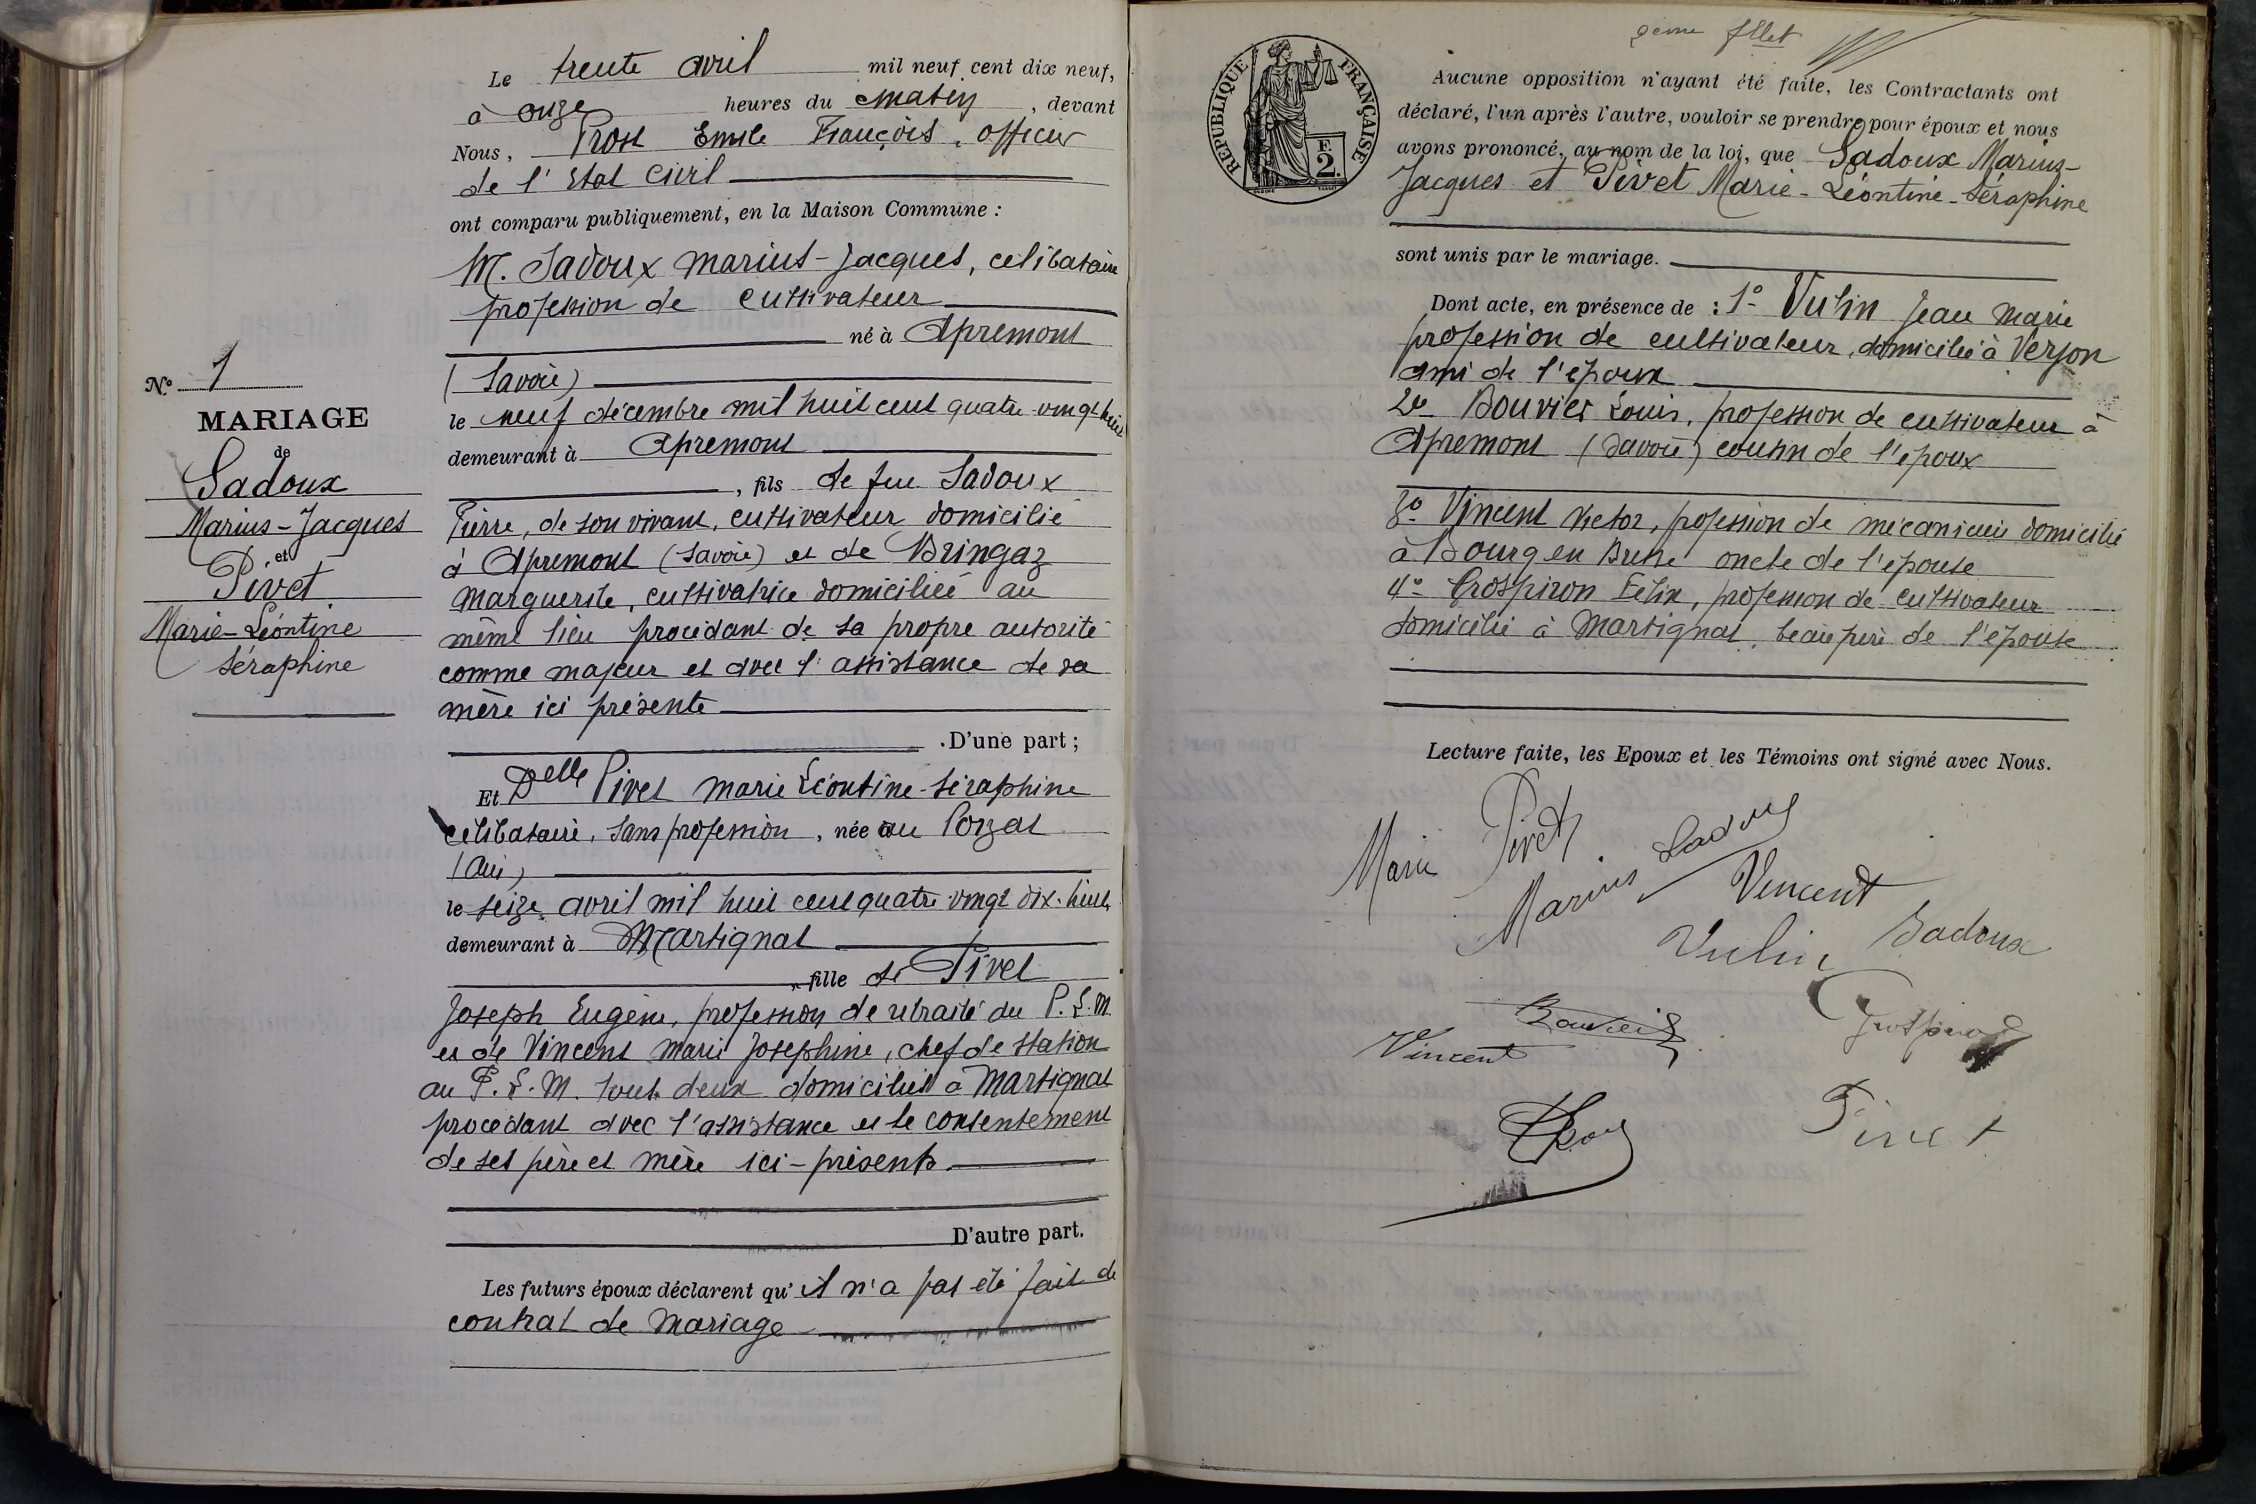 Le trente avril mil neuf cent dix neuf,
à onze heures du matin, devant
Nous, Prost Emile François, officier
de l'Etat Civil
ont comparu publiquement, en la Maison Commune :
M. Sadoux Marius-Jacques, celibataire
profession de cultivateur
né à Apremont
(Savoie)
le neuf décembre mil huit cent quatre-vingt-huit
demeurant à Apremont
, fils de feu Sadoux
Pierre, de son vivant, cultivateur domicilié
à Apremont (Savoie) et de Bringaz
Marguerite, cultivatrice domiciliée au
même lieu procédant de sa propre autorité
comme majeur et avec l'assistance de sa
mère ici présente
. D'une part ;
Et Delle Pivet Marie Léontine-Séraphine
célibataire, sans profession, née au Poizat
(Ain)
le seize avril mil huit cent quatre-vingt dix-huit
demeurant à Martignat
, fille de Pivet
Joseph Eugène, profession de retraité du P.L.M.
et de Vincent Marie Josephine, chef de station
au P.L.M. tous deux domiciliés à Martignat
procédant avec l'assistance et le consentement
de ses père et mère ici-présents
D'autre part.
Les futurs époux déclarent qu'il n'a pas été fait de
contrat de mariage
No 1
MARIAGE
de
Sadoux
Marius-Jacques
et
Pivet
Marie-Léontine
Séraphine
2eme fllet
REPUBLIQUE FRANÇAISE
F
2.
Aucune opposition n'ayant été faite, les Contractants ont
déclaré, l'un après l'autre, vouloir se prendre pour époux et nous
avons prononcé, au nom de la loi, que Sadoux Marius-
Jacques et Pivet Marie-Léontine-Séraphine
sont unis par le mariage.
Dont acte, en présence de : 1° Vulin Jean Marie
profession de cultivateur, domicilié à Verjon
ami de l'époux
2e Bouvier Louis, profession de cultivateur à
Apremont (Savoie) cousin de l'époux
3° Vincent Victor, profession de mécanicien domicilié
à Bourg en Bresse oncle de l'épouse
4° Grospiron Félix, profession de cultivateur
domicilié à Martignat, beau père de l'épouse
Lecture faite, les Epoux et les Témoins ont signé avec Nous.
Marie Pivet
Marius Sadoux
Vincent
Vulin
Sadoux
Bouvier
Grospiron
Vincent
Pivet